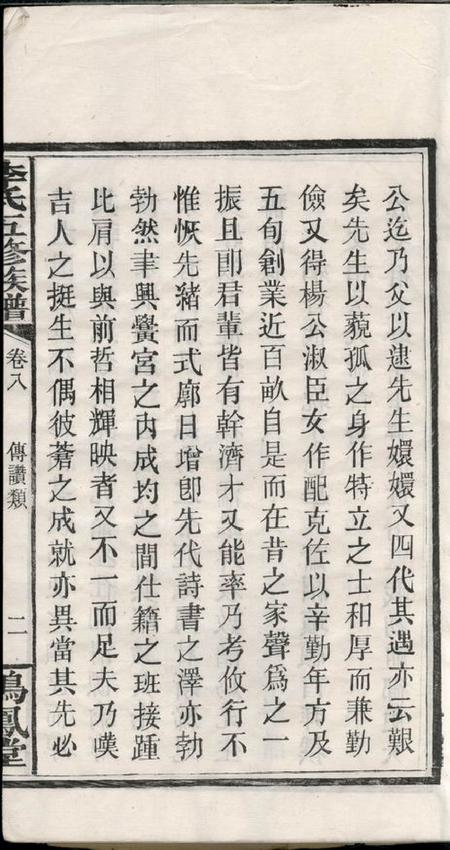 公迄乃父以逮先生嬛嬛又四代其遇亦云艱
矣先生以藐孤之身作特立之士和厚而兼勤
儉又得楊公淑臣女作配克佐以辛勤年方及
五旬創業近百畝自是而在昔之家聲爲之一
振且卽君輩皆有幹濟才又能率乃考攸行不
惟恢先緒而式廓日增卽先代詩書之澤亦勃
勃然聿興黌宮之内成均之間仕籍之班接踵
比肩以與前哲相輝映者又不一而足夫乃嘆
吉人之挺生不偶彼蒼之成就亦異當其先必
李氏五修族譜
卷八
傳讚類
二
鳴鳳堂